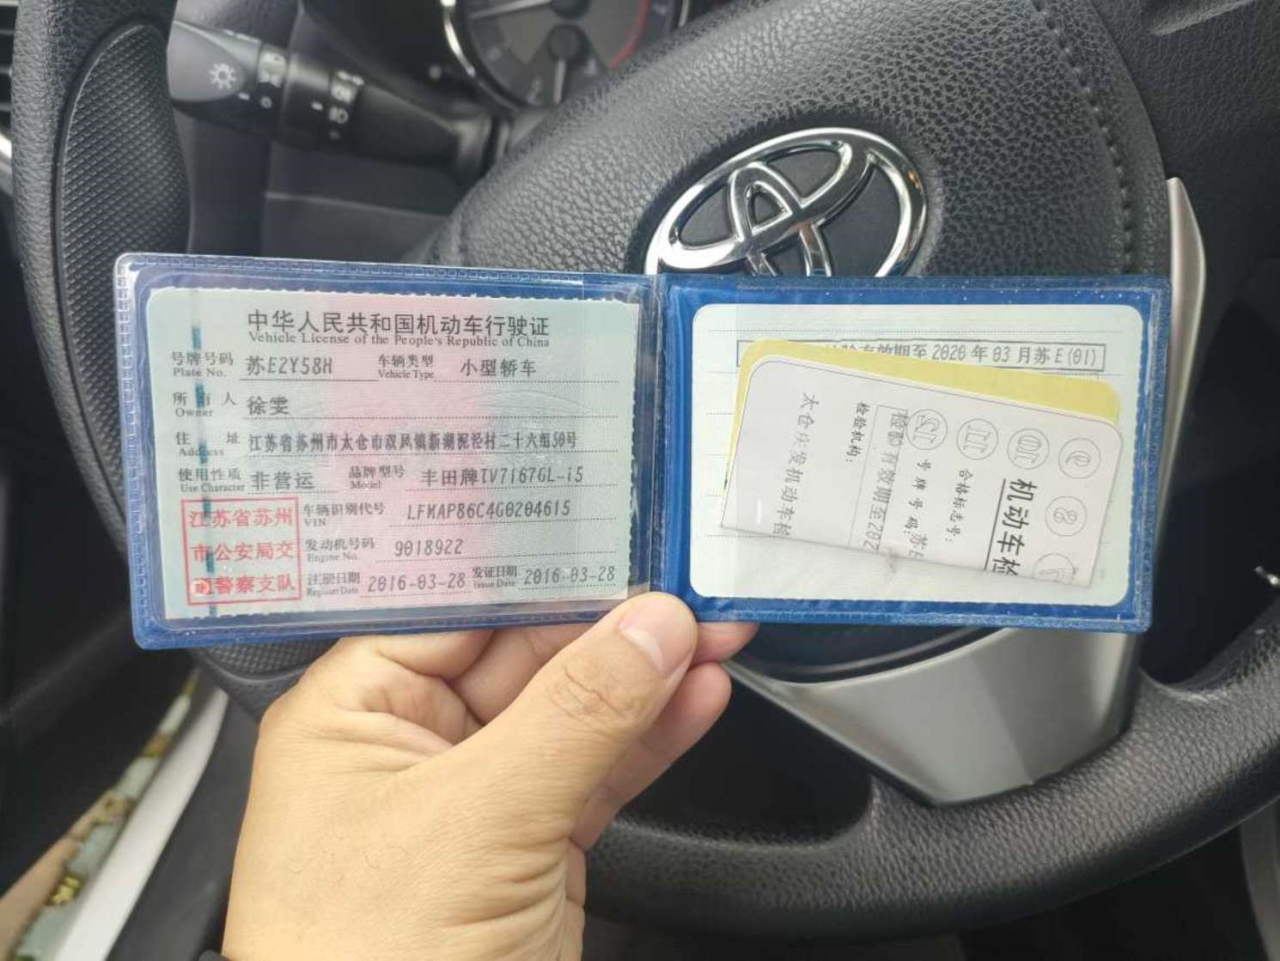 中华人民共和国机动车行驶证
Vehicle License of the People's Republic of China
号牌号码 苏E2Y58H 车辆类型 小型轿车
Plate No. Vehicle Type
所有人 徐雯
Owner
住址 江苏省苏州市太仓市双凤镇新湖泥泾村二十六组50号
Address
使用性质 非营运 品牌型号 丰田牌TV7167GL-i5
Use Character Model
江苏省苏州
市公安局交
警察支队
车辆识别代号 LFMAP86C4G0204615
VIN
发动机号码 9018922
Engine No.
注册日期 2016-03-28 发证日期 2016-03-28
Register Date Issue Date
有效期至2026年03月苏E(01)
机动车检
合格标志号:
号牌号码:苏E
检验有效期至202
检验机构:
太仓庆发机动车检